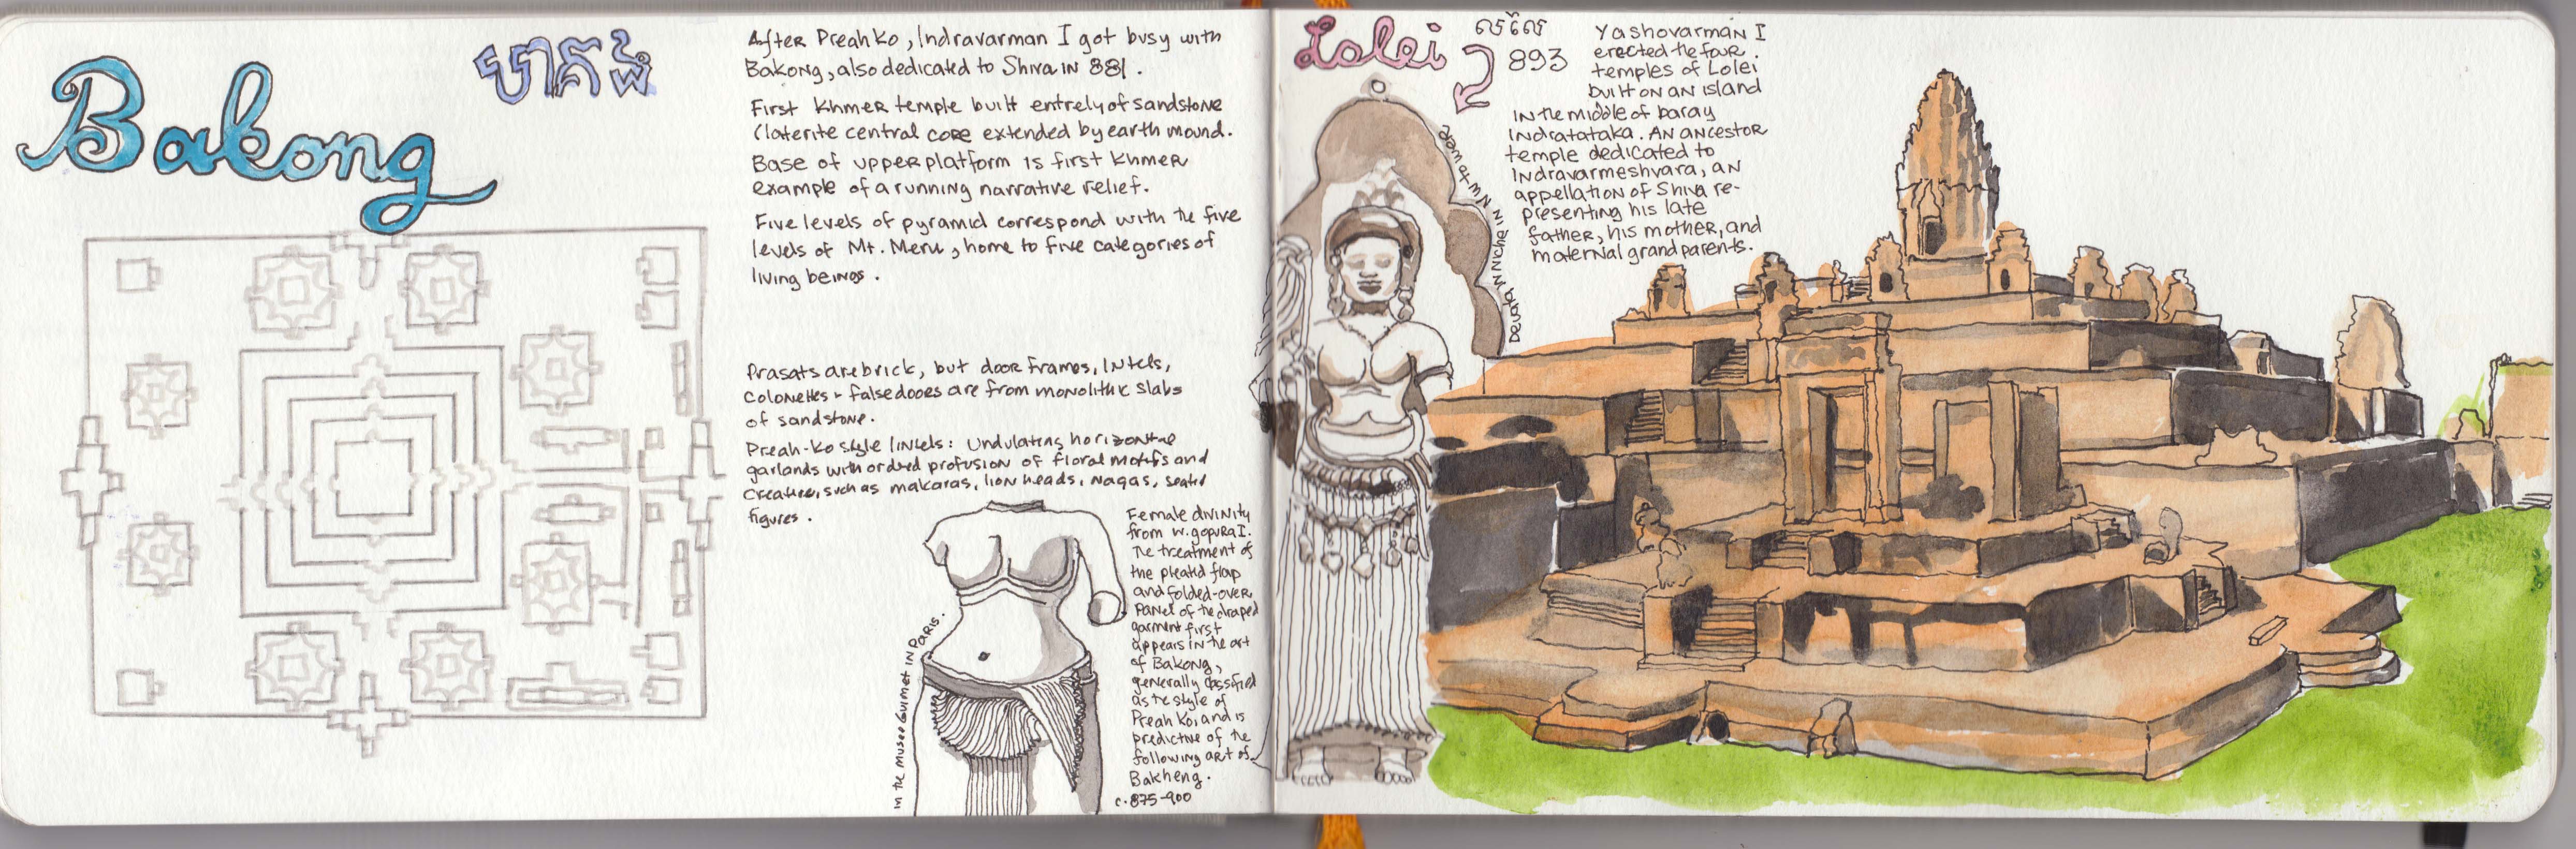 Bakong
បាគង
After Preah Ko, Indravarman I got busy with
Bakong, also dedicated to Shiva in 881.
First Khmer temple built entirely of sandstone
(laterite central core extended by earth mound.
Base of upper platform is first Khmer
example of a running narrative relief.
Five levels of pyramid correspond with the five
levels of Mt. Meru, home to five categories of
living beings.
Prasats are brick, but door frames, lintels,
colonettes + false doors are from monolithic slabs
of sandstone.
Preah-Ko style lintels: undulating horizontal
garlands with ordered profusion of floral motifs and
creatures, such as makaras, lion heads, nagas, seated
figures.
in the Musee Guimet in Paris.
Female divinity
from W. gopura I.
The treatment of
the pleated flap
and folded-over
panel of the draped
garment first
appears in the art
of Bakong,
generally classified
as te style of
Preah Ko, and is
predictive of the
following art of
Bakheng.
c. 875-900
Lolei
លលៃ
893
Yashovarman I
erected the four
temples of Lolei
built on an island
in the middle of baray
Indratataka. An ancestor
temple dedicated to
Indravarmeshvara, an
appellation of Shiva re-
presenting his late
father, his mother, and
maternal grandparents.
Devata in niche in NW tower